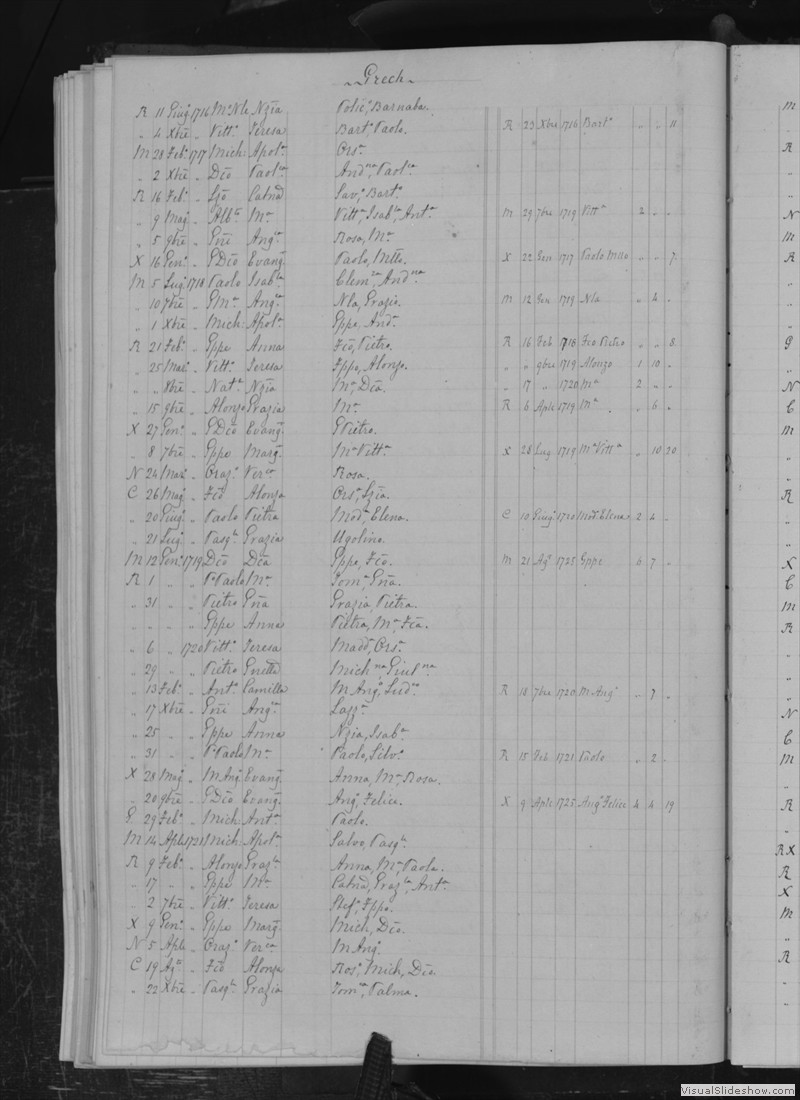 Grech
R 11 Giug. 1716 Mo Nla Nzia Polic, Barnaba.
" 4 Xbre " Vitto Teresa Barto Paolo. R 23 Xbre 1716 Barto " " 11
M 28 Febo 1717 Mich: Apola Orsa
" 2 Xbre " Dco Paolca Andna, Paolca
R 16 Febo " Lzo Catnd Savo Barto
" 9 Mago " Albto Ma Vitta Isabla, Anta M 29 7bre 1719 Vitta 2 " "
" 5 9bre " Gni Angca Rosa, Ma
X 16 Geno " GDco Evang. Paolo, Mtteo. X 22 Gen 1717 Paolo Mtteo " " 7
M 5 Lugo 1718 Paolo Isabla Clemza, Andna
" 10 7bre " GMa Angca Nla, Grazia. M 12 Gen 1719 Nla " 4 "
" 1 Xbre " Mich: Apola Gppe, Anda
R 21 Febo " Gppe Anna Fco, Pietro. R 16 Feb 1718 Fco Pietro " " 8
" 25 Maro " Vitto Teresa Fppo, Alonzo. " " 9bre 1719 Alonzo 1 10 "
" " 8bre " Nato Nzia Ma, Dca. " 17 " 1720 Ma 2 " "
" 15 9bre " Alonzo Grazia Ma R 6 Aple 1719 Ma " 6 "
X 27 Geno " GDco Evang. GPietro.
" 8 7bre " Gppe Marg. Ma Vitta X 28 Lug 1719 Ma Vitta " 10 20
N 24 Maro " Grazo Verca Rosa.
C 26 Mago " Fco Alonza Orsa, Lzia.
" 20 Giugo " Paolo Pietra Moda, Elena. C 10 Giugo 1720 Moda Elena 2 4 "
" 21 Lugo " Pasqle Grazia Ugolino.
M 12 Geno 1719 Dco Dca Gppe, Fco. M 21 Ago 1725 Gppe 6 7 "
R 1 " " P Paolo Ma Toma, Gna.
" 31 " " Pietro Gna Grazia, Pietra.
" " " " Gppe Anna Pietra, Ma, Fca.
" 6 " 1720 Vitto Teresa Madda, Orsa
" 29 " " Pietro Gnetta Michna, Giulna
" 13 Febo " Anto Camilla M Ango, Ludco R 18 7bre 1720 M Ango " 7 "
" 17 Xbre " Gni Angca Lazza
" 25 " " Gppe Anna Nzia, Isaba
" 31 " " P Paolo Ma Paolo, Silvo R 15 Feb 1721 Paolo " 2 "
X 28 Mago " M Ango Evang. Anna, Ma, Rosa.
" 20 9bre " GDco Evang. Ango, Felice. X 9 Aple 1725 Ango Felice 4 4 19
G 29 Febo " Mich: Anta Paolo.
M 14 Aple 1721 Mich: Apola Salvo, Pasqle
R 9 Febo " Alonzo Grazla Anna, Ma, Paola.
" 17 " " Gppe Ma Catnd, Grazla, Anta
" 2 7bre " Vitto Teresa Stefo, Fppo.
X 9 Geno " Gppe Marg. Mich, Dco.
N 5 Aple " Grazo Verca M Ango
C 19 Ago " Fco Alonza Roso, Mich, Dca
" 22 Xbre " Pasqle Grazia Toma, Palma.
M
R
N
M
R
G
N
C
M
R
X
C
M
R
N
C
M
R
RX
R
X
M
R
VisualSlideshow.com